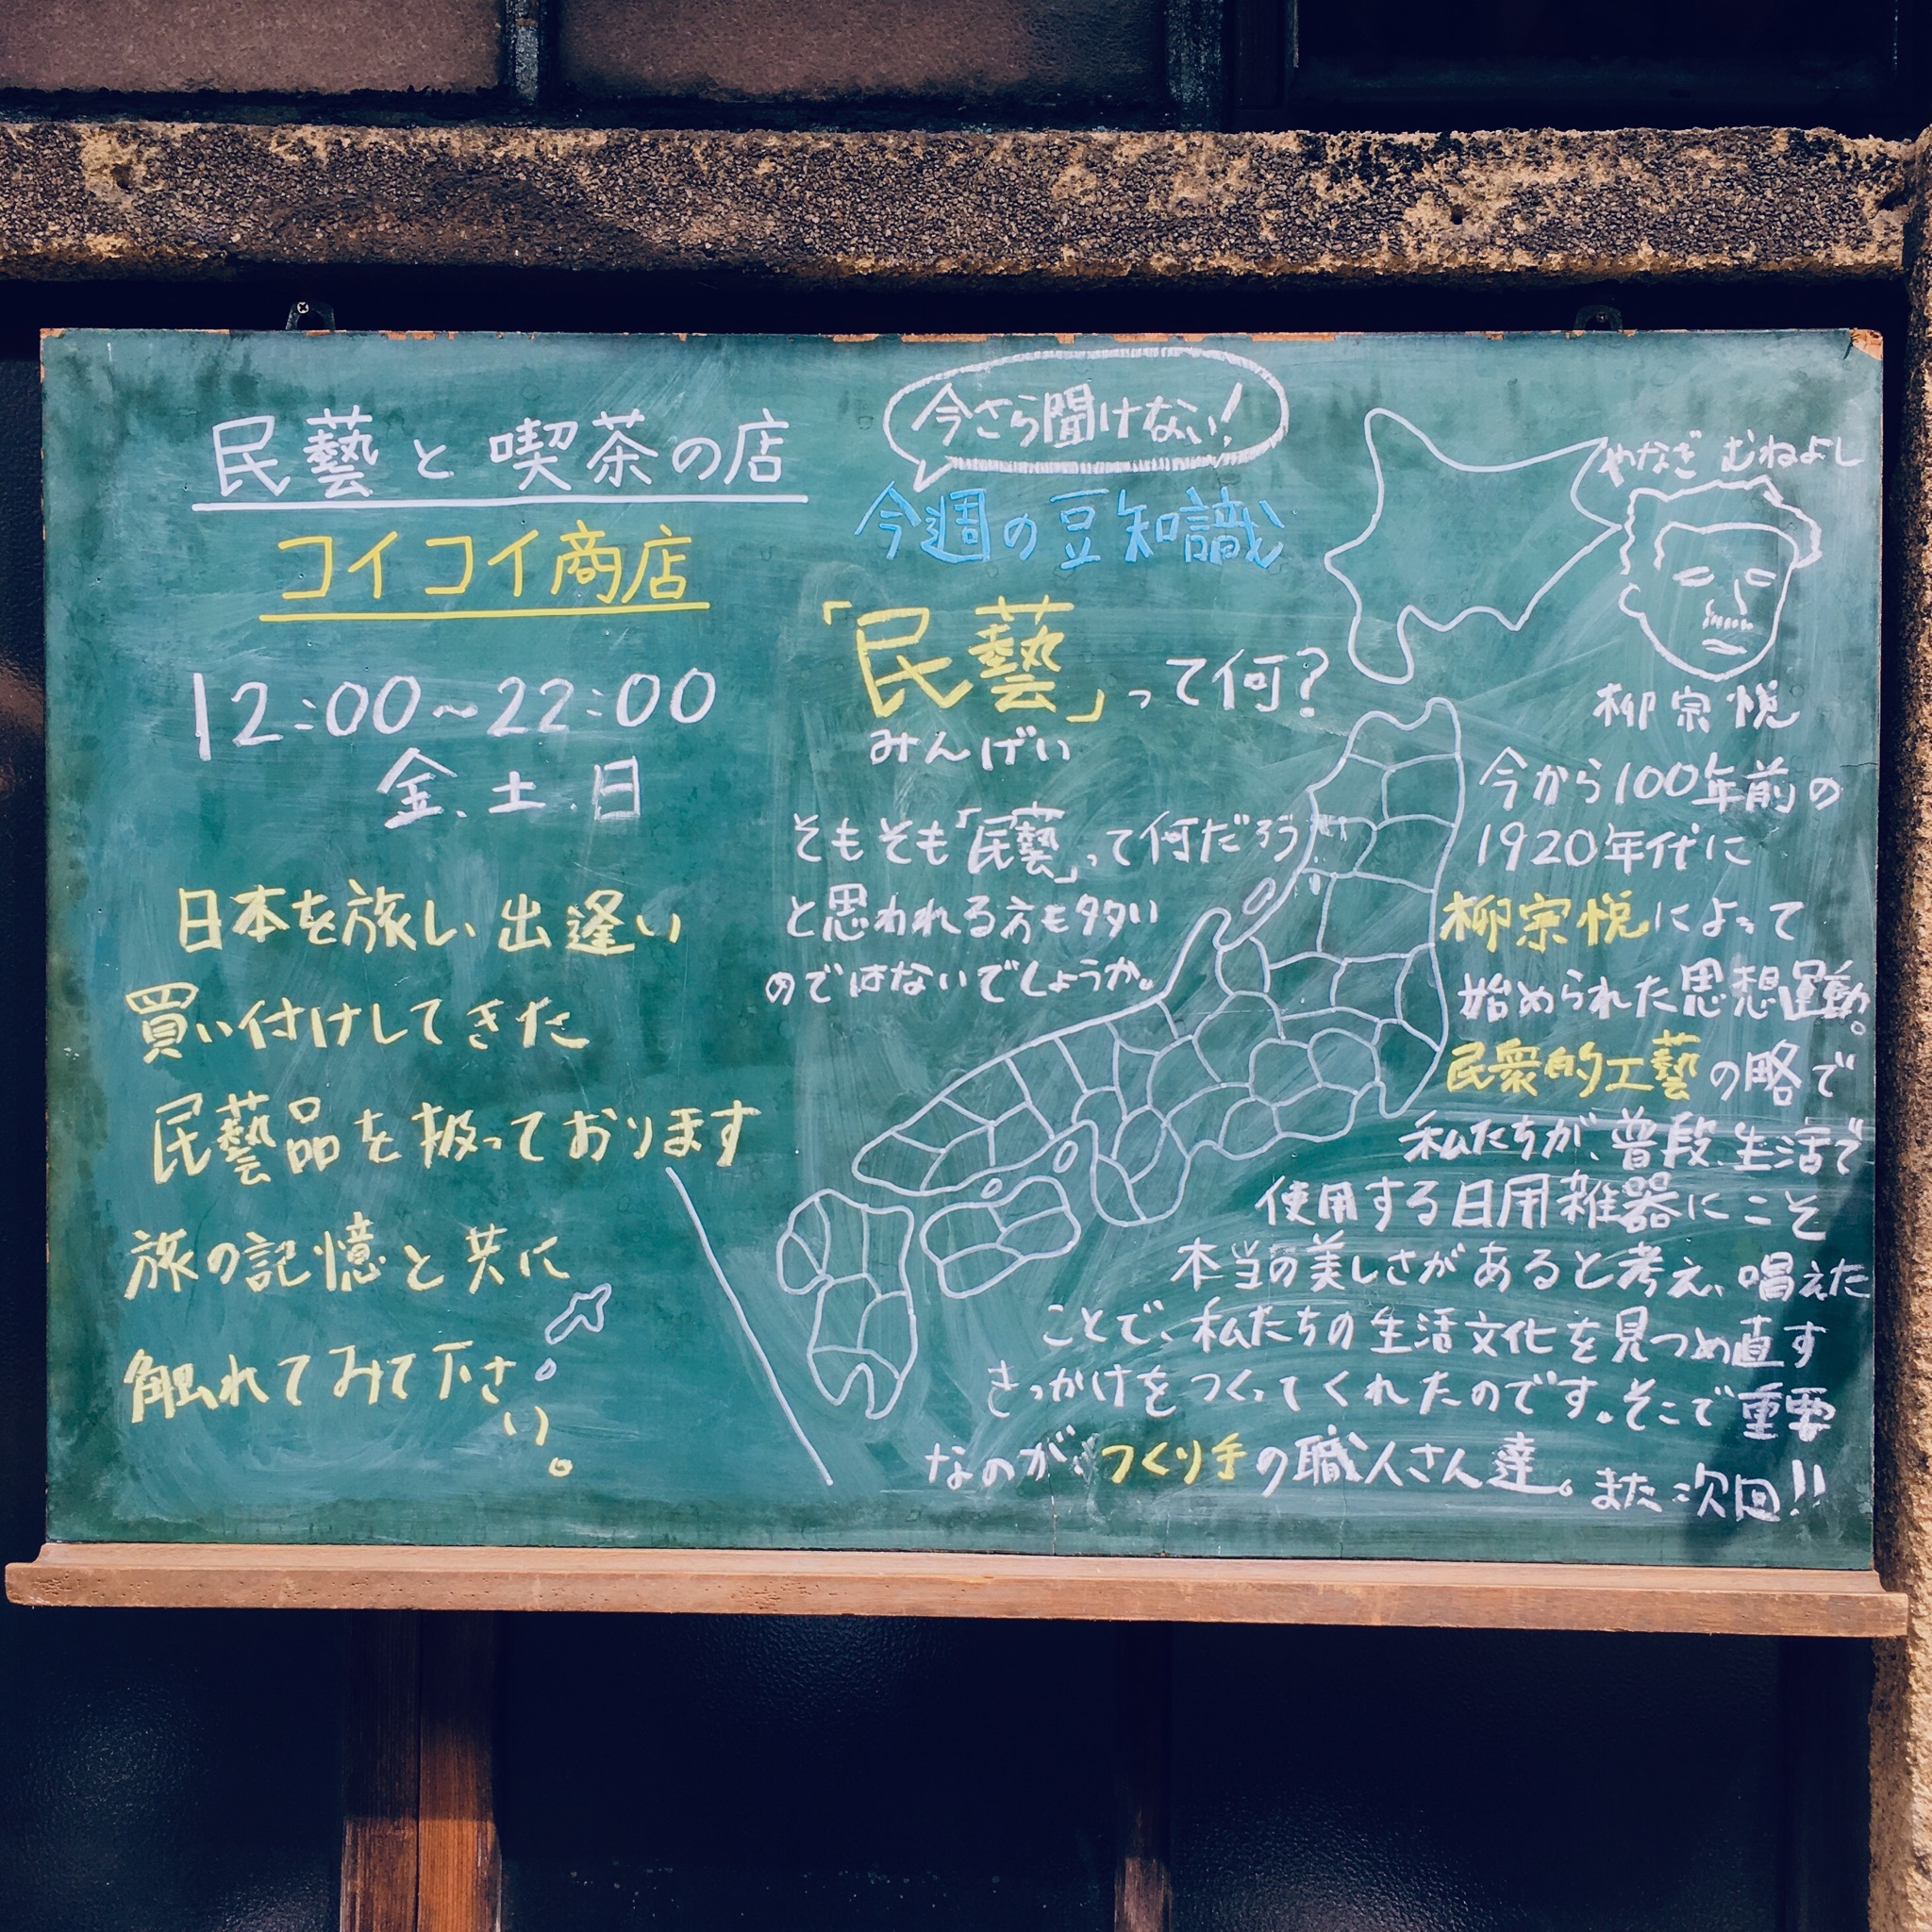 民藝と喫茶の店
コイコイ商店
12:00~22:00
金.土.日
日本を旅し出逢い
買い付けしてきた
民藝品を扱っております
旅の記憶と共に
触れてみて下さ
い。
今さら聞けない!
今週の豆知識
「民藝」って何?
みんげい
そもそも「民藝」って何だろう
と思われる方も多い
のではないでしょうか。
やなぎ むねよし
柳宗悦
今から100年前の
1920年代に
柳宗悦によって
始められた思想運動。
民衆的工藝の略で
私たちが、普段、生活で
使用する日用雑器にこそ
本当の美しさがあると考え、唱えた
ことで、私たちの生活文化を見つめ直す
きっかけをつくってくれたのです。そこで重要
なのが、つくり手の職人さん達。また次回!!